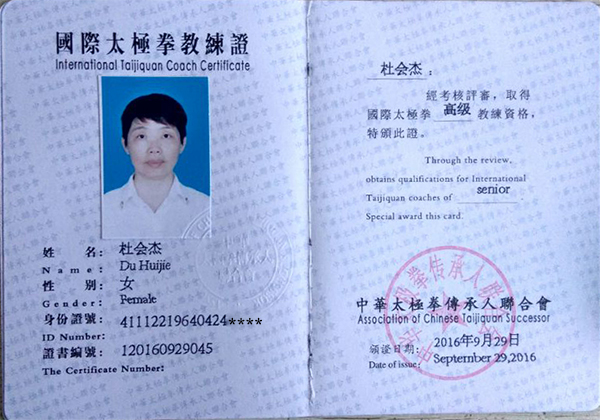 國際太極拳教練證
International Taijiquan Coach Certificate
姓 名: 杜会杰
Name: Du Huijie
性 别: 女
Gender: Female
身份證號: 41112219640424****
ID Number:
證書編號: 120160929045
The Certificate Number:
杜会杰:
經考核評審,取得
國際太極拳 高级 教練資格,
特頒此證。
Through the review,
obtains qualifications for International
Taijiquan coaches of senior.
Special award this card.
中華太極拳傳承人聯合會
Association of Chinese Taijiquan Successor
頒證日期: 2016年9月29日
Date of issue: September 29,2016